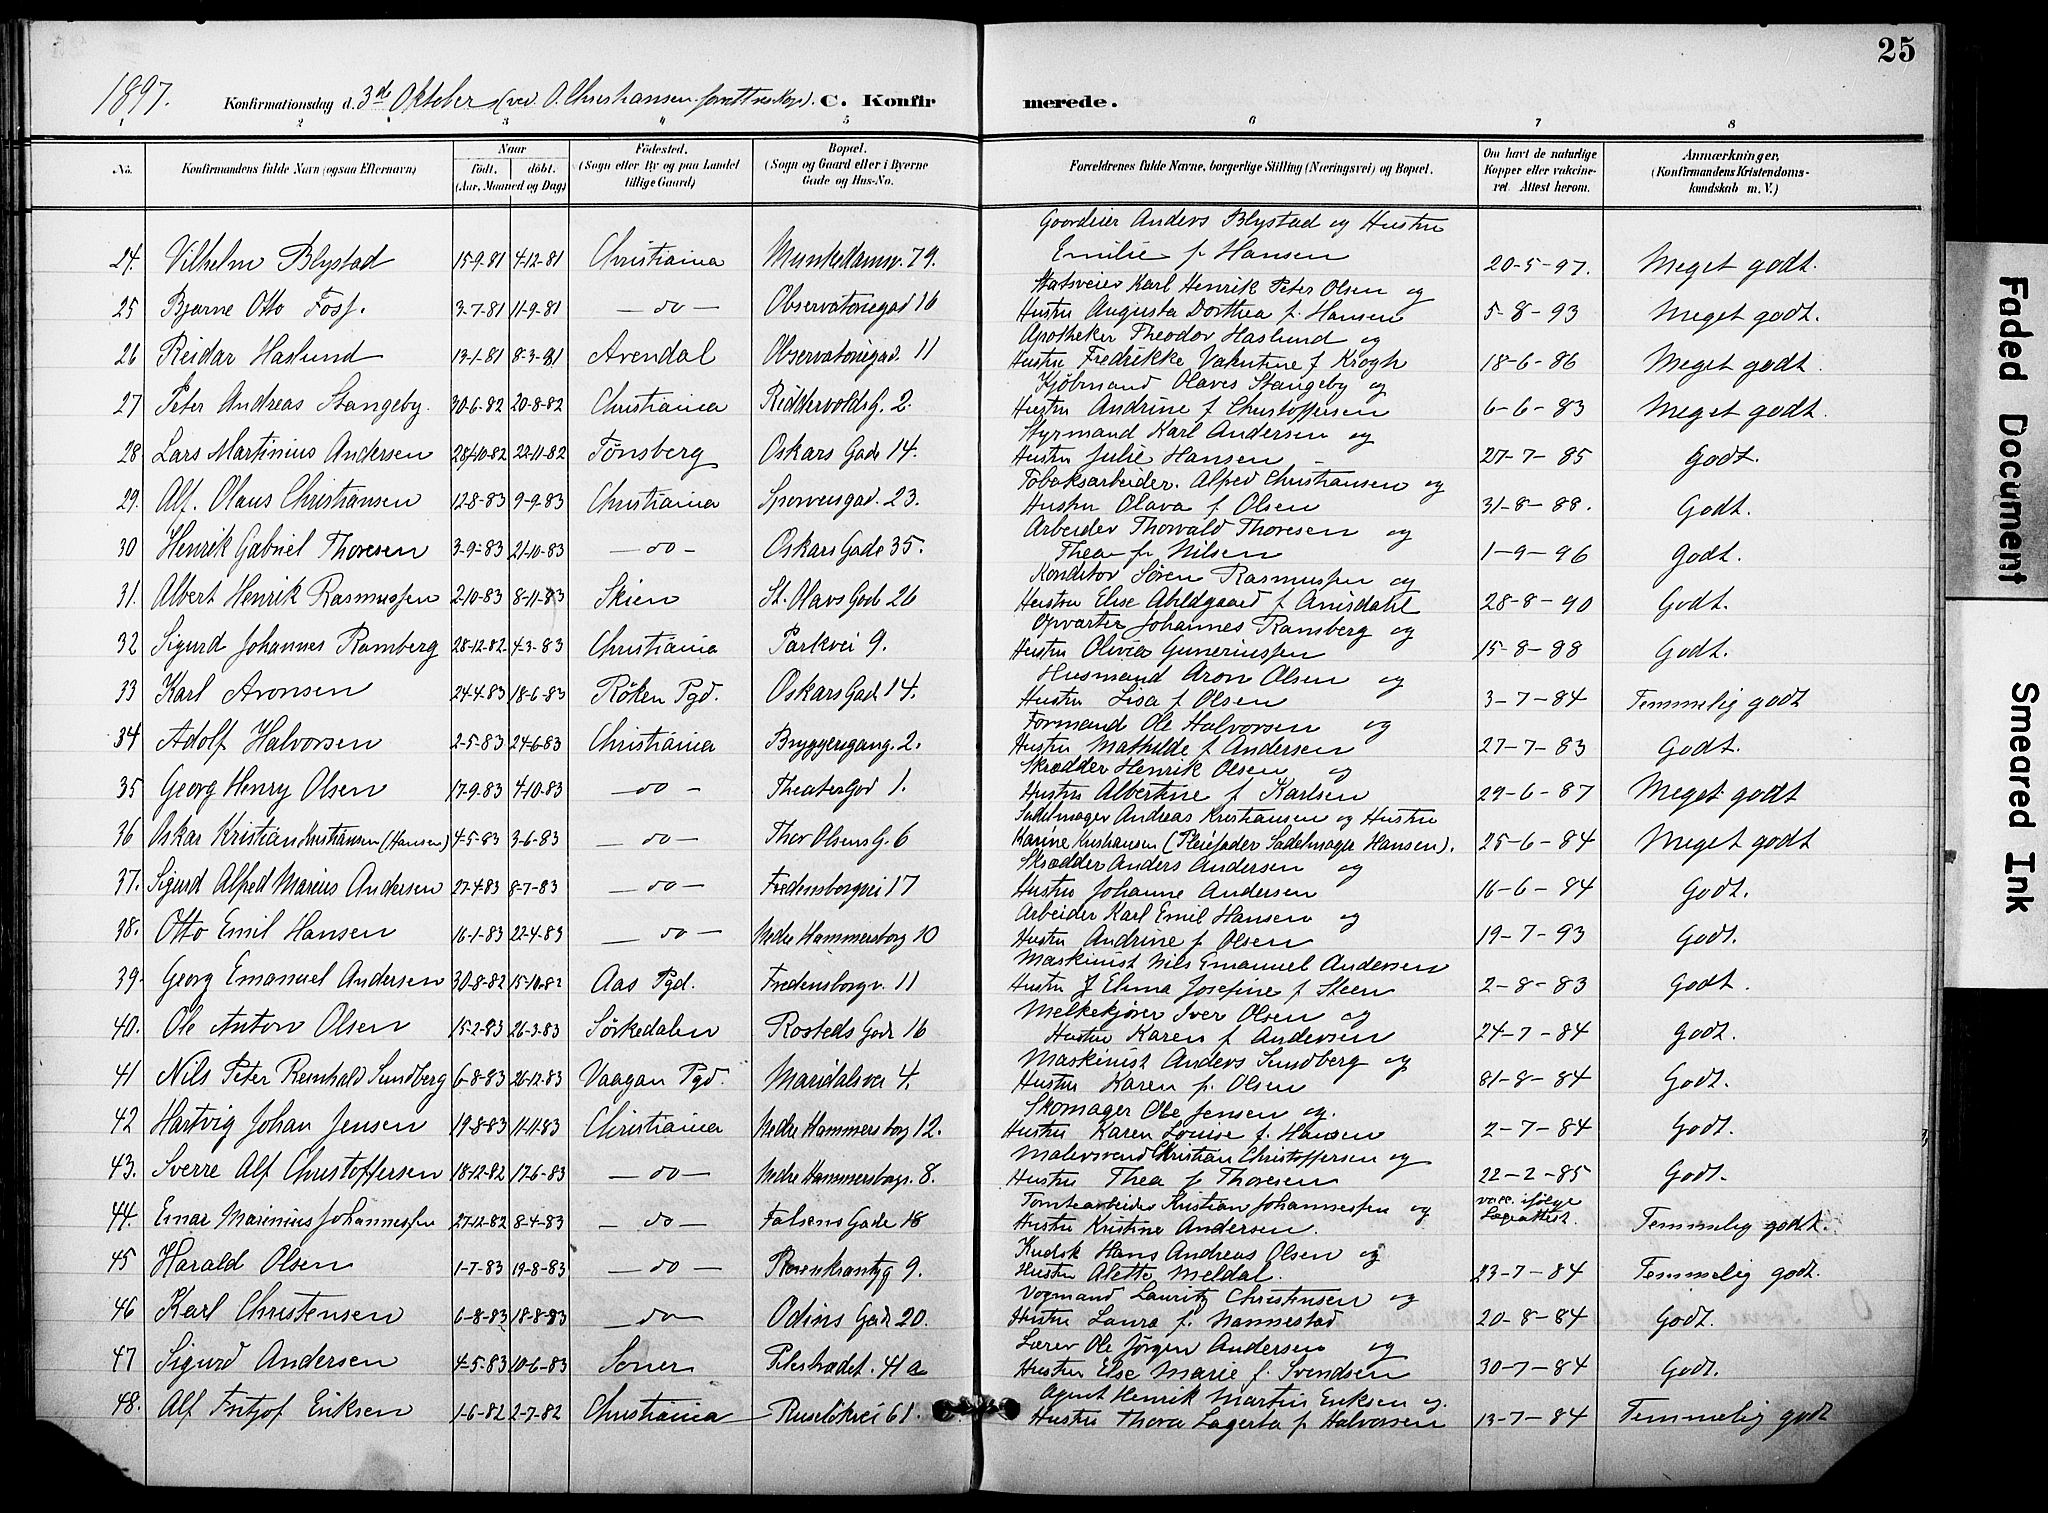 25
1897. Konfirmationsdag d. 3de Oktober (ved O. Christiansen C. Konfirmerede.
1 2 3 4 5 6 7 8
No. Konfirmandens fulde Navn (ogsaa Efternavn) Naar født. døbt. (Aar, Maaned og Dag) Fødested. (Sogn eller By og paa Landet tillige Gaard) Bopæl. (Sogn og Gaard eller i Byerne Gade og Hus-No. Forældrenes fulde Navne, borgerlige Stilling (Næringsvei) og Bopæl. Om havt de naturlige Kopper eller vakcineret. Attest herom. Anmærkninger, (Konfirmandens Kristendomskundskab m. V.)
Gaardeier Anders Blystad og Hustru
24. Vilhelm Blystad 15-9-81 4-12-81 Christiania Munkedamsv. 79. Emilie f. Hansen 20-5-97. Meget godt.
Karl Henrik Peter Olsen og
25 Bjarne Otto Foss. 3-7-81 11-9-81 —do— Observatoriegad 16 Hustru Augusta Dorthea f. Hansen 5-8-93 Meget godt.
Apotheker Theodor Haslund og
26 Reidar Haslund 13-1-81 8-3-81 Arendal Observatoriegad. 11 Hustru Fredrikke Valentine f Krogh 18-6-86 Meget godt.
Kjöbmand Olaves Stangeby og
27 Peter Andreas Stangeby. 30-6-82 20-8-82 Christiania RiddervoldsG. 2. Hustru Andrine f Christoffersen 6-6-83 Meget godt.
Styrmand Karl Andersen og
28 Lars Martinius Andersen 28-10-82 22-11-82 Tønsberg Oskars Gade 14. Hustru Julie Hansen 27-7-85 Godt.
Tobaksarbeider. Alfred Christiansen og
29. Alf. Olaus Christiansen 12-8-83 9-9-83 Christiania Sporveisgad. 23. Hustru Olava f Olsen 31-8-88. Godt.
Arbeider Thorvald Thoresen og
30 Henrik Gabriel Thoresen 3-9-83 21-10-83 —do— Oskars Gade 35. Thea f. Nilsen 1-9-96 Godt.
Konditor Søren Rasmussen og
31. Albert Henrik Rasmussen 2-10-83 8-11-83 Skien St. Olavs Gad. 26 Hustru Else Abildgaard f Arnsdahl 28-8-90 Godt.
Opvarter Johannes Ramberg og
32 Sigurd Johannes Ramberg 28-12-82 4-3-83 Christiania Parkvei 9. Hustru Olivia Guneriussen 15-8-88 Godt.
Husmand Aron Olsen og
33 Karl Aronsen 24-4-83 18-6-83 Røken Pgd. Oskars Gad. 14. Hustru Lisa f Olsen 3-7-84 Temmelig godt
Formand Ole Halvorsen og
34 Adolf Halvorsen 2-5-83 24-6-83 Christiania Bryggerigang. 2. Hustru Mathilde f Andersen 27-7-83 Godt.
Skrædder Henrik Olsen og
35 Georg Henry Olsen 17-9-83 4-10-83 —do— TheaterGad 1. Hustru Albertine f Karlsen 29-6-87 Meget godt
Sadelmager Andreas Kristiansen og Hustru
36 Oskar Kristian Kristiansen (Hansen) 4-5-83 3-6-83 —do— Thor Olsens G. 6 Karine Kristiansen (Pleiefader Sadelmager Hansen). 25-6-84 Meget godt
Skrædder Anders Andersen og
37. Sigurd Alfred Marius Andersen 27-4-83 8-7-83 —do— Fredensborgvei 17 Hustru Johanne Andersen 16-6-84 Godt.
Arbeider Karl Emil Hansen og
38. Otto Emil Hansen 16-1-83 22-4-83 —do— Nedre Hammersborg 10 Hustru Andrine f. Olsen 19-7-93 Godt.
Maskinist Nils Emanuel Andersen
39. Georg Emanuel Andersen 30-8-82 15-10-82 Aas Pgd. Fredensborgv. 11 Hustru J Elina Josefine f Steen 2-8-83 Godt.
Melkekjører Iver Olsen og
40. Ole Anton Olsen 15-2-83 26-3-83 Sörkedalen Rosteds Gade 16 Hustru Karen f Andersen 24-7-84 Godt.
Maskinist Anders Sundberg og
41 Nils Peter Reinhald Sundberg 6-8-83 26-12-83 Vaagan Pgd. Maridalsvei 4. Hustru Karen f. Olsen 31-8-84 Godt.
Skomager Ole Jensen og.
42 Hartvig Johan Jensen 19-8-83 11-11-83 Christiania Nedre Hammersborg 12. Hustru Karen Louise f. Hansen 2-7-84 Godt.
Malersvend Kristian Christoffersen og
43. Sverre Alf Christoffersen 18-12-82 17-6-83 —do— Nedre Hammersborg. 8. Hustru Thea f Thoresen 22-2-85 Godt.
Tomtearbeider Kristian Johannessen og vacc. ifølge
44. Einar Marinius Johannessen 27-12-82 8-4-83 —do— Falsens Gade 18 Hustru Kristine Andersen. Lægeattest. Temmelig godt.
Kudsk Hans Andreas Olsen og
45 Harald Olsen 1-7-83 19-8-83 —do— Rosenkrantzg 9. Hustru Alette Meldal. 23-7-84 Temmelig godt.
Vognmand Lauritz Christensen og
46 Karl Christensen 6-8-83 18-8-83 —do— Odins Gade 20. Hustru Laura f. Nannestad 20-8-84 Godt.
Lærer Ole Jørgen Andersen og
47 Sigurd Andersen 4-5-83 10-6-83 Soner Pilestrædet. 41a Hustru Else Marie f. Svendsen 30-7-84 Godt.
Agent Henrik Martin Eriksen og.
48. Alf Fritjof Eriksen 1-6-82 2-7-82 Christiania Ruseløkvei 61. Hustru Thora Lagerta f Halvorsen 13-7-84 Temmelig godt
Faded Document
Smeared Ink